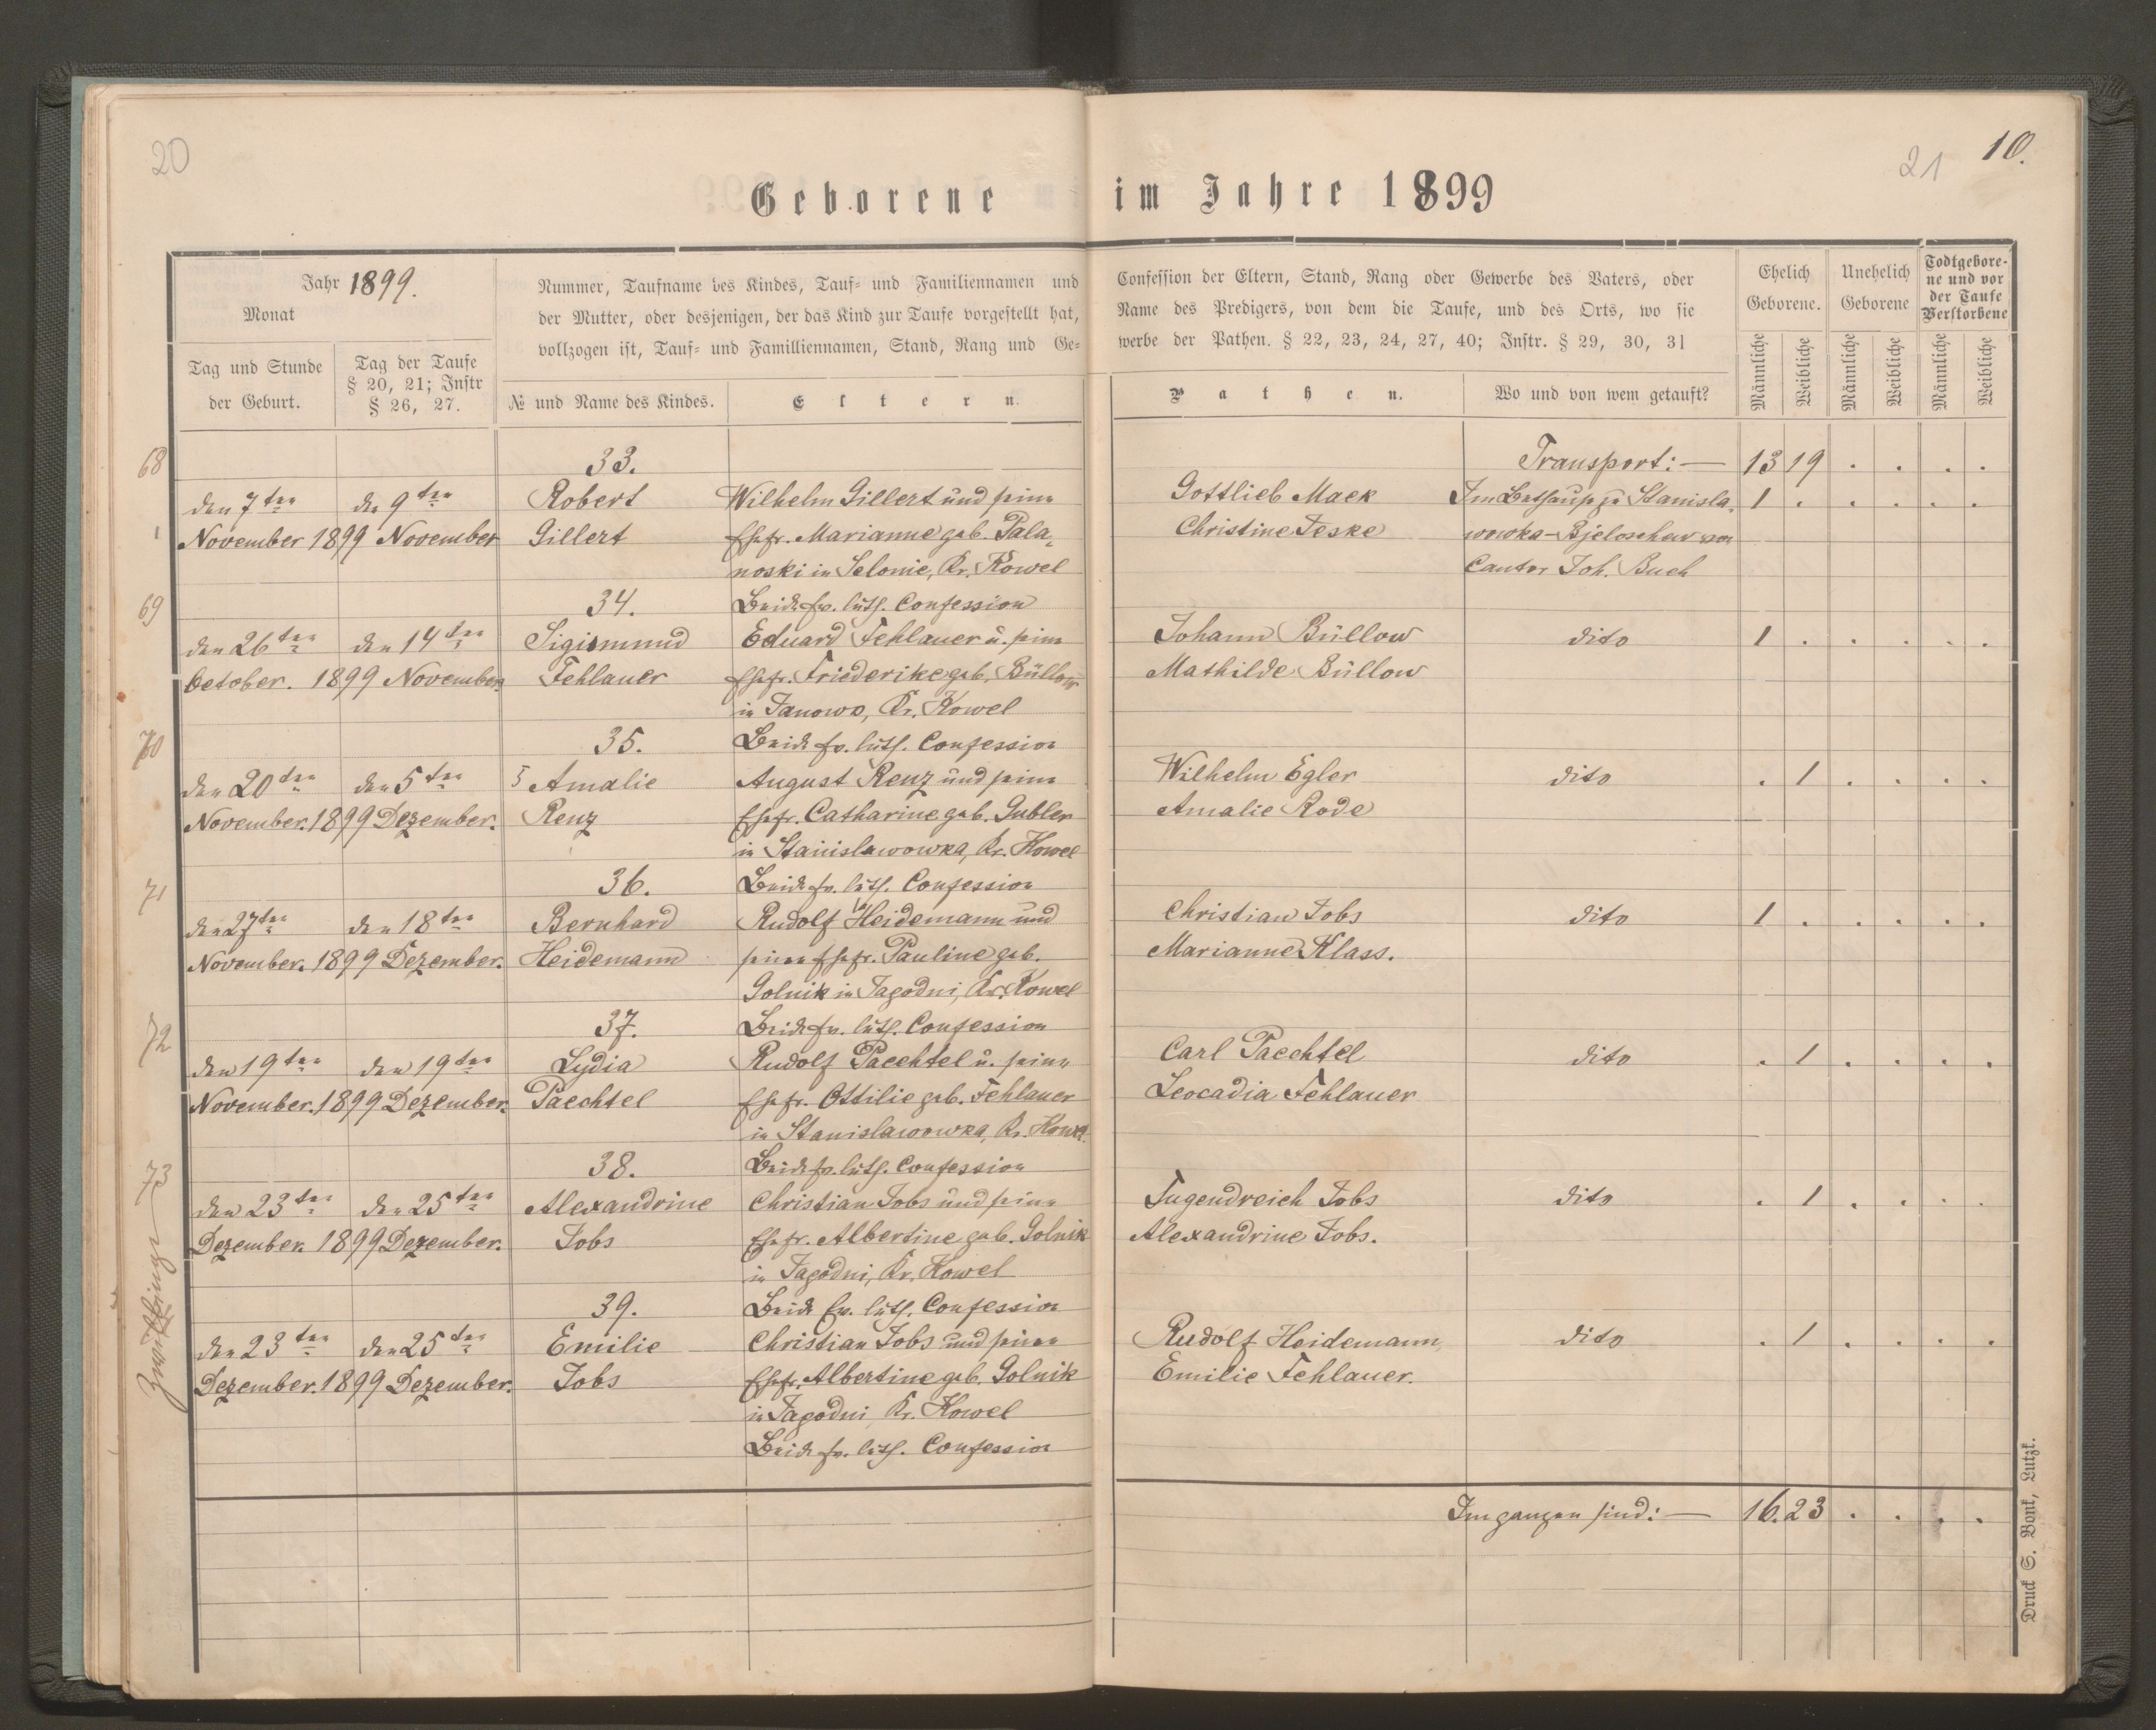 20
21
10.
Geborene im Jahre 1899
Jahr 1899.
Monat
Tag und Stunde
der Geburt.
Tag der Taufe
§ 20, 21; Instr
§ 26, 27.
Nummer, Taufname des Kindes, Tauf- und Familiennamen und
der Mutter, oder desjenigen, der das Kind zur Taufe vorgestellt hat,
vollzogen ist, Tauf- und Familliennamen, Stand, Rang und Ge-
№ und Name des Kindes.
Eltern.
Confession der Eltern, Stand, Rang oder Gewerbe des Vaters, oder
Name des Predigers, von dem die Taufe, und des Orts, wo sie
werbe der Pathen. § 22, 23, 24, 27, 40; Instr. § 29, 30, 31
Pathen.
Wo und von wem getauft?
Ehelich
Geborene.
Unehelich
Geborene
Todtgebore-
ne und vor
der Taufe
Verstorbene
Männliche
Weibliche
Männliche
Weibliche
Männliche
Weibliche
Transport:— 13 19 . . . .
68
33.
den 7ten den 9ten Robert Wilhelm Gillert und seine Gottlieb Mack Im Bethause zu Stanisla- 1 . . . . .
November 1899 November Gillert Ehefr. Marianne geb. Pala- Christine Jeske wowka-Bjeloschew von
noski in Selonie, Kr. Kowel Cantor Joh. Buch
69
34. Beide ev. luth. Confession
den 26ten den 14ten Sigismund Eduard Fehlauer u. seine Johann Büllow dito 1 . . . . .
October. 1899 November. Fehlauer Ehefr. Friederike geb. Büllow Mathilde Büllow
in Janowo, Kr. Kowel
70
35. Beide ev. luth. Confession
den 20ten den 5ten Amalie August Renz und seine Wilhelm Egler dito . 1 . . . .
November. 1899 Dezember. Renz Ehefr. Catharine geb. Gubler Amalie Rode
in Stanislawowka, Kr. Kowel
71
36. Beide ev. luth. Confession
den 27ten den 18ten Bernhard Rudolf Heidemann und Christian Jobs dito 1 . . . . .
November. 1899 Dezember. Heidemann seine Ehefr. Pauline geb. Marianne Klass.
Golnik in Jagodni, Kr. Kowel
72
37. Beide ev. luth. Confession
den 19ten den 19ten Lydia Rudolf Paechtel u. seine Carl Paechtel dito . 1 . . . .
November. 1899 Dezember. Paechtel Ehefr. Ottilie geb. Fehlauer Leocadia Fehlauer
in Stanislawowka, Kr. Kowel.
73
38. Beide ev. luth. Confession
den 23ten den 25ten Alexandrine Christian Jobs und seine Tugendreich Jobs dito . 1 . . . .
Dezember. 1899 Dezember. Jobs Ehefr. Albertine geb. Golnik Alexandrine Jobs.
in Jagodni, Kr. Kowel
Zwillinge
39. Beide ev. luth. Confession
den 23ten den 25ten Emilie Christian Jobs und seine Rudolf Heidemann dito . 1 . . . .
Dezember. 1899 Dezember. Jobs Ehefr. Albertine geb. Golnik Emilie Fehlauer.
in Jagodni Kr. Kowel
Beide ev. luth. Confession
Im ganzen sind:— 16. 23 . . . .
Druck S. Bonk, Lutzk.